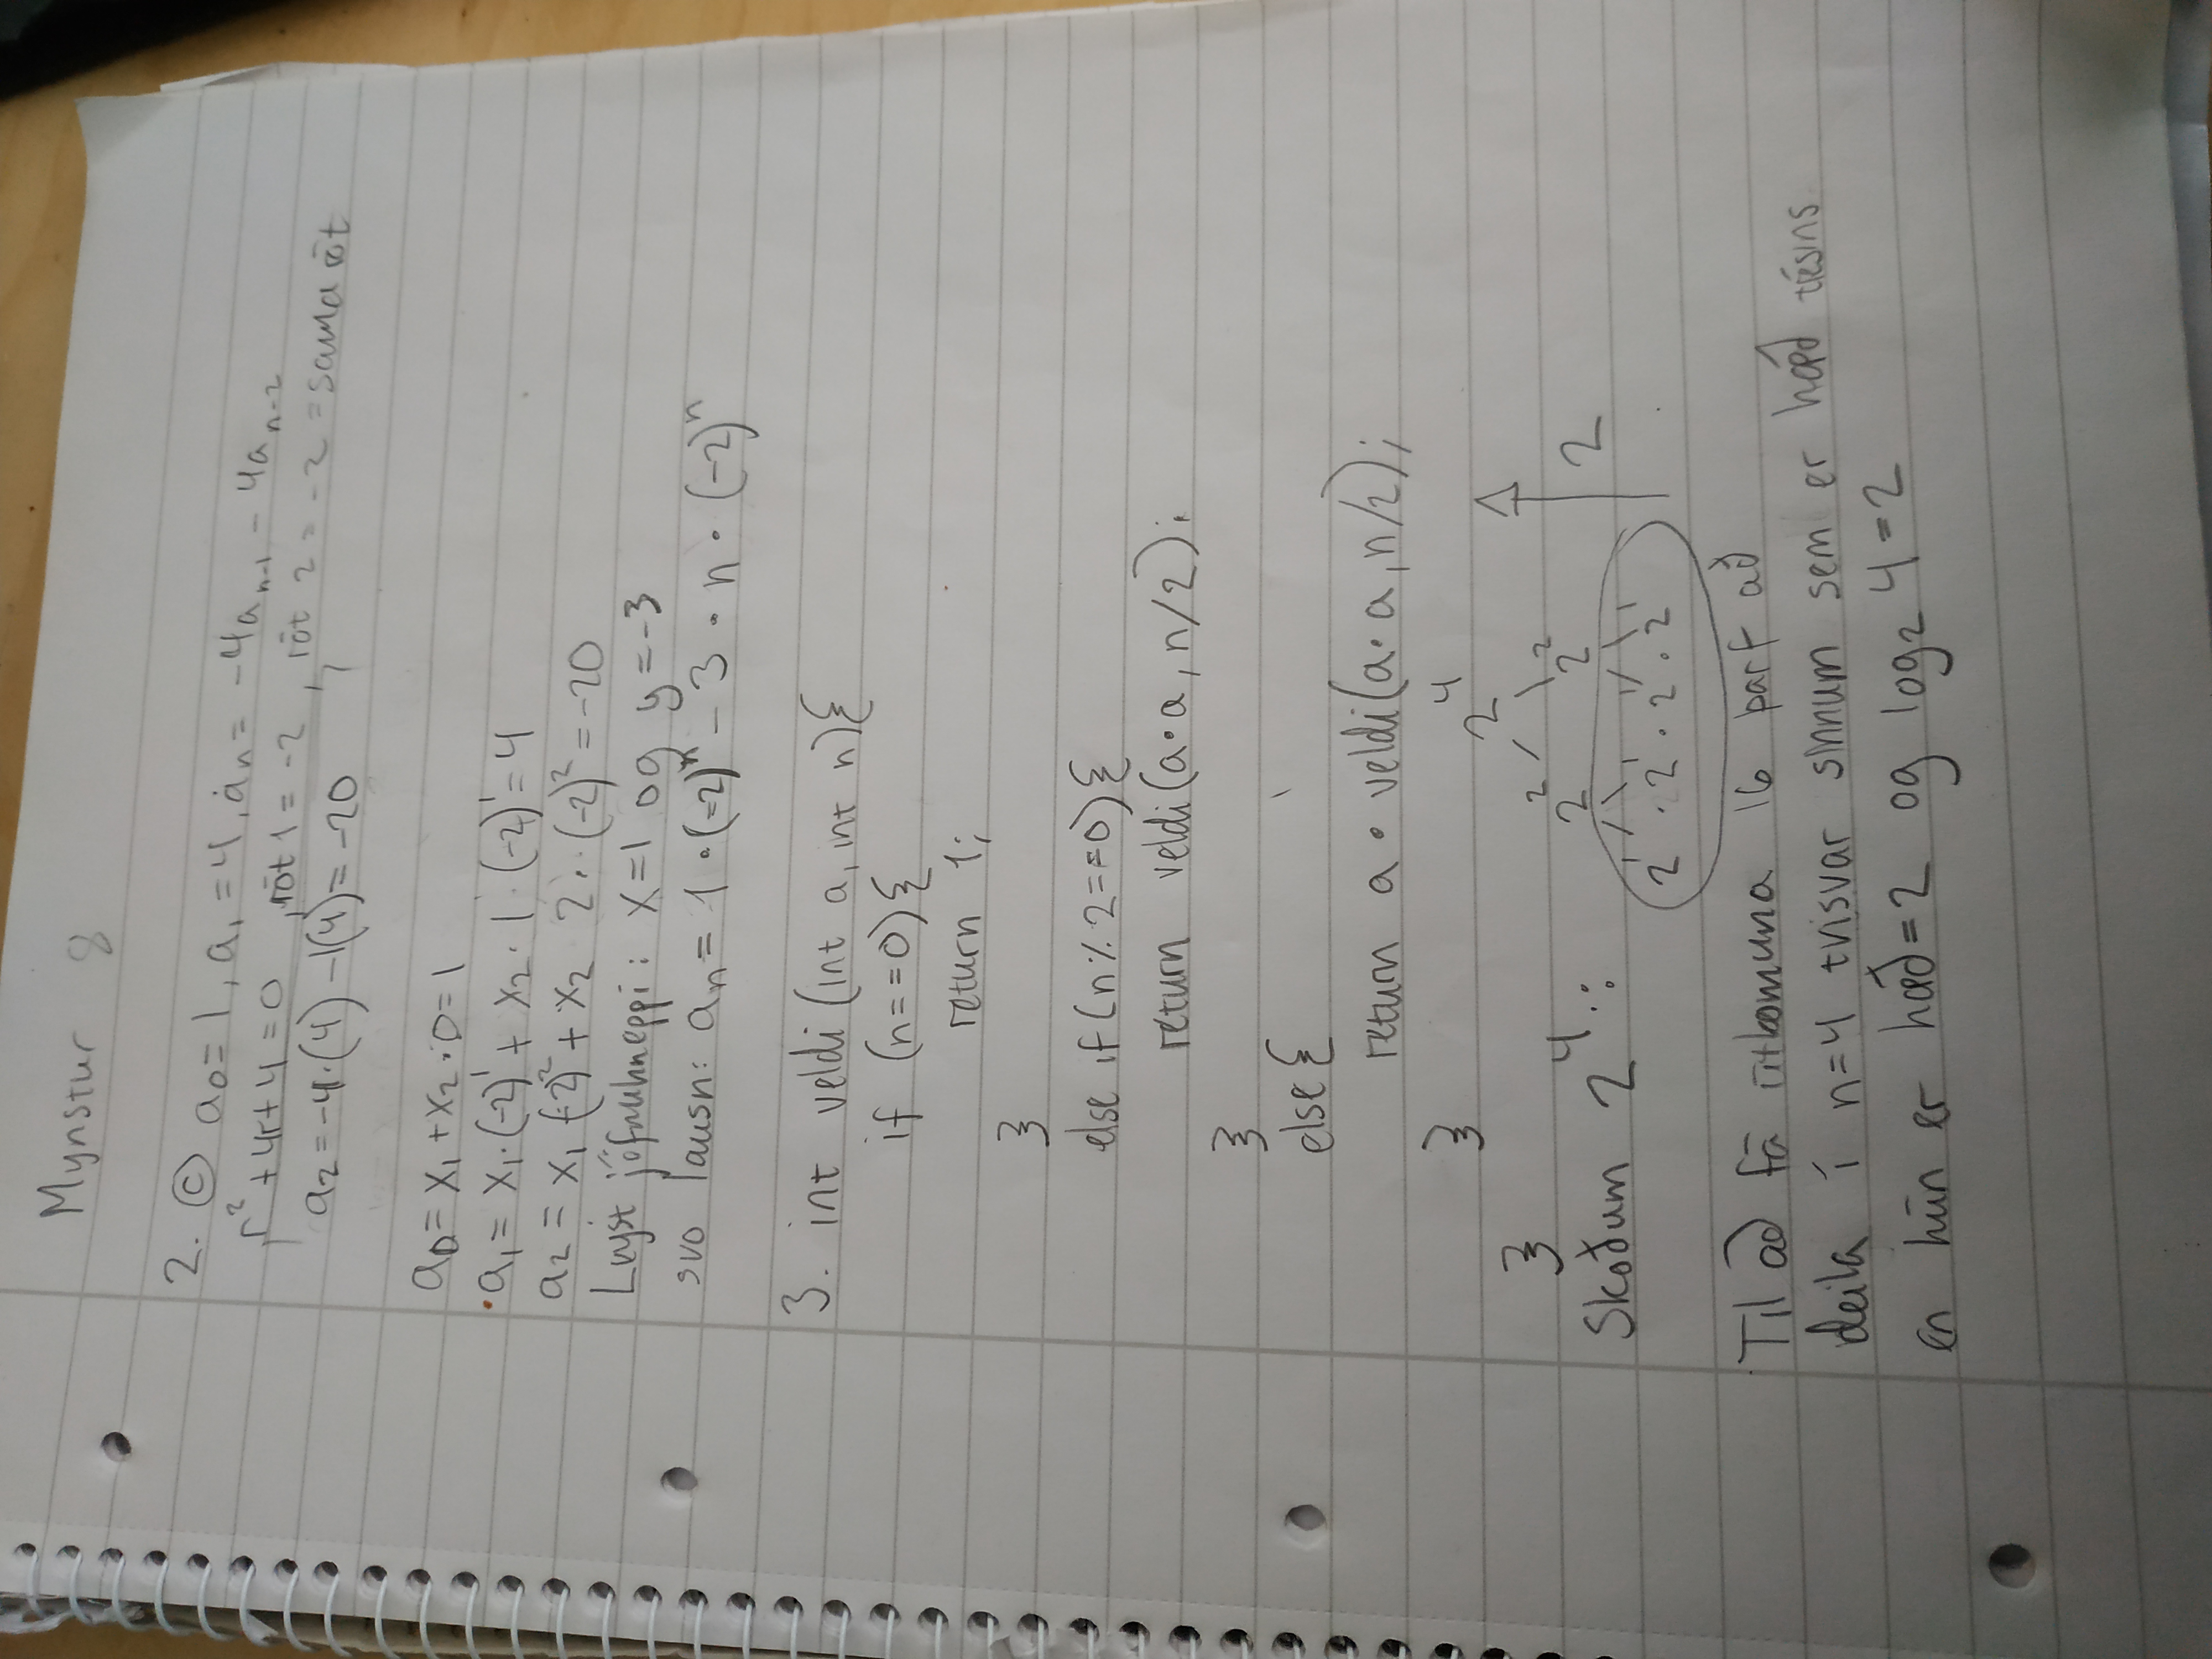 Mynstur 8
2. ⓒ a₀ = 1, a₁ = 4, aₙ = -4aₙ₋₁ - 4aₙ₋₂
r² + 4r + 4 = 0, rót 1 = -2, rót 2 = -2 = sama rót
a₂ = -4·(4) - 1(4) = -20
a₀ = x₁ + x₂·0 = 1
a₁ = x₁·(-2)¹ + x₂·1·(-2)¹ = 4
a₂ = x₁ (-2)² + x₂ 2·(-2)² = -20
Leyst jöfnuhneppi: x = 1 og y = -3
svo lausn: aₙ = 1·(-2)ⁿ - 3·n·(-2)ⁿ
3. int veldi (int a, int n){
if (n==0){
return 1;
}
else if (n % 2 == 0){
return veldi(a·a, n/2);
}
else{
return a·veldi(a·a, n/2);
}
}
2⁴
2² 2²
Skoðum 2⁴: 2
2¹·2¹·2¹·2¹
Til að fá útkomuna 16 þarf að
deila í n=4 tvisvar sinnum sem er hæð trésins
en hún er hæð = 2 og log₂ 4 = 2